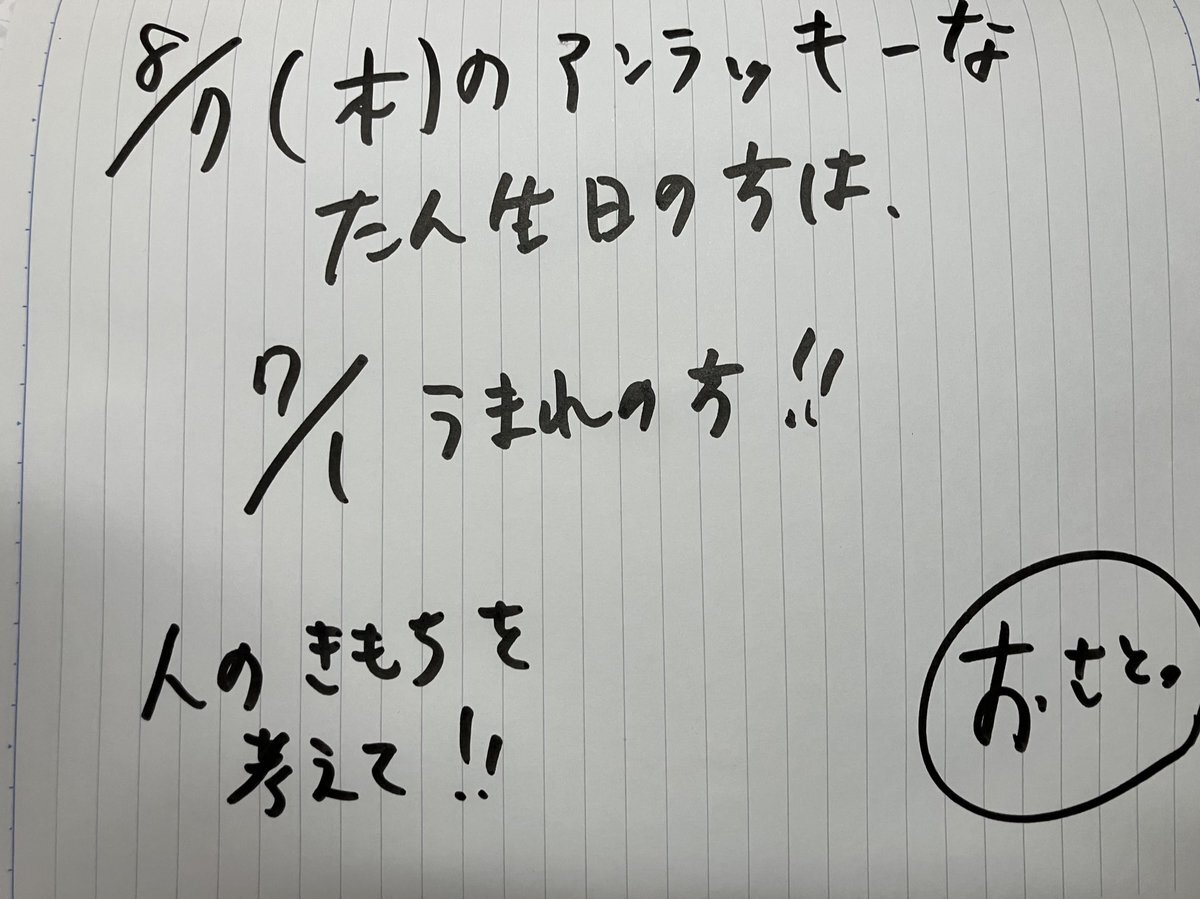 8/7(木)のアンラッキーな
たん生日の方は、
7/1 うまれの方!!
人のきもちを
考えて!!
おさと。